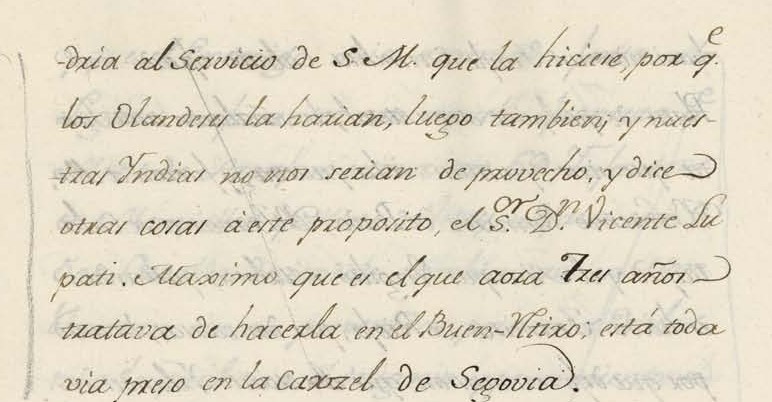 -dria al Servicio de S. M. que la hiciese, por q.e
los Olandeses la harian, luego tambien; y nues-
tras Yndias no nos serian de provecho; y dice
otras cosas à este proposito, el S.or D.n Vicente Lu
pati. Maximo que es el que aora Tres años
tratava de hacerla en el Buen-Rtiro; está toda
via preso en la Carzel de Segovia.